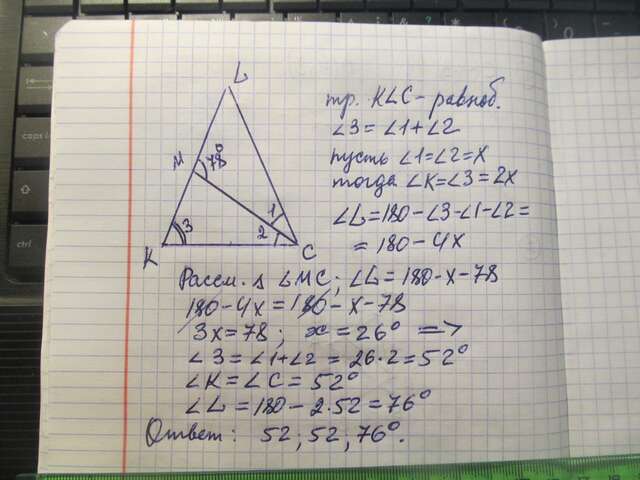 L
M
78°
1
3
2
K
C
тр. KLC - равноб.
∠3 = ∠1 + ∠2
пусть ∠1 = ∠2 = x
тогда ∠K = ∠3 = 2x
∠L = 180 - ∠3 - ∠1 - ∠2 =
= 180 - 4x
Рассм. Δ LMC; ∠L = 180 - x - 78
180 - 4x = 180 - x - 78
3x = 78; x = 26° =>
∠3 = ∠1 + ∠2 = 26·2 = 52°
∠K = ∠C = 52°
∠L = 180 - 2·52 = 76°
Ответ: 52; 52; 76°.
caps
ctrl